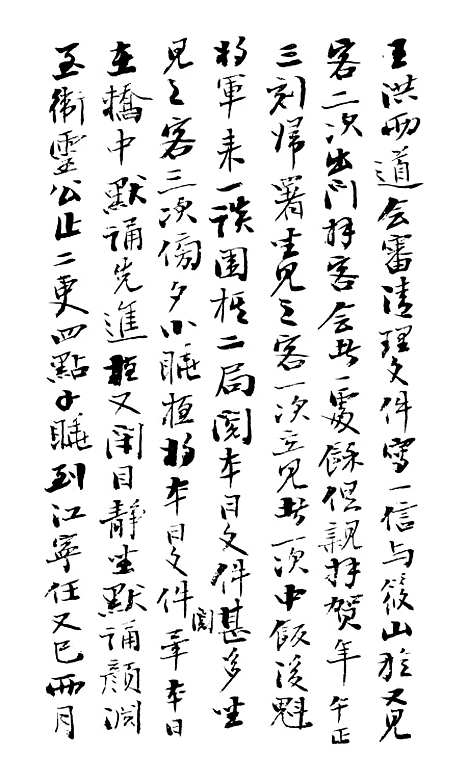 王洪兩道會審清理文件寫一信與筱山旋又見
客二次出門拜客會此一處餘俱親拜賀年午正
三刻歸署坐見之客一次立見者一次中飯後魁
將軍來一談圍棋二局閱本日文件甚多坐
見之客三次傍夕小睡夜將本日文件閱畢本日
在轎中默誦先進夜又閉目靜坐默誦顏淵
至衛靈公止二更四點小睡到江寧任又已兩月